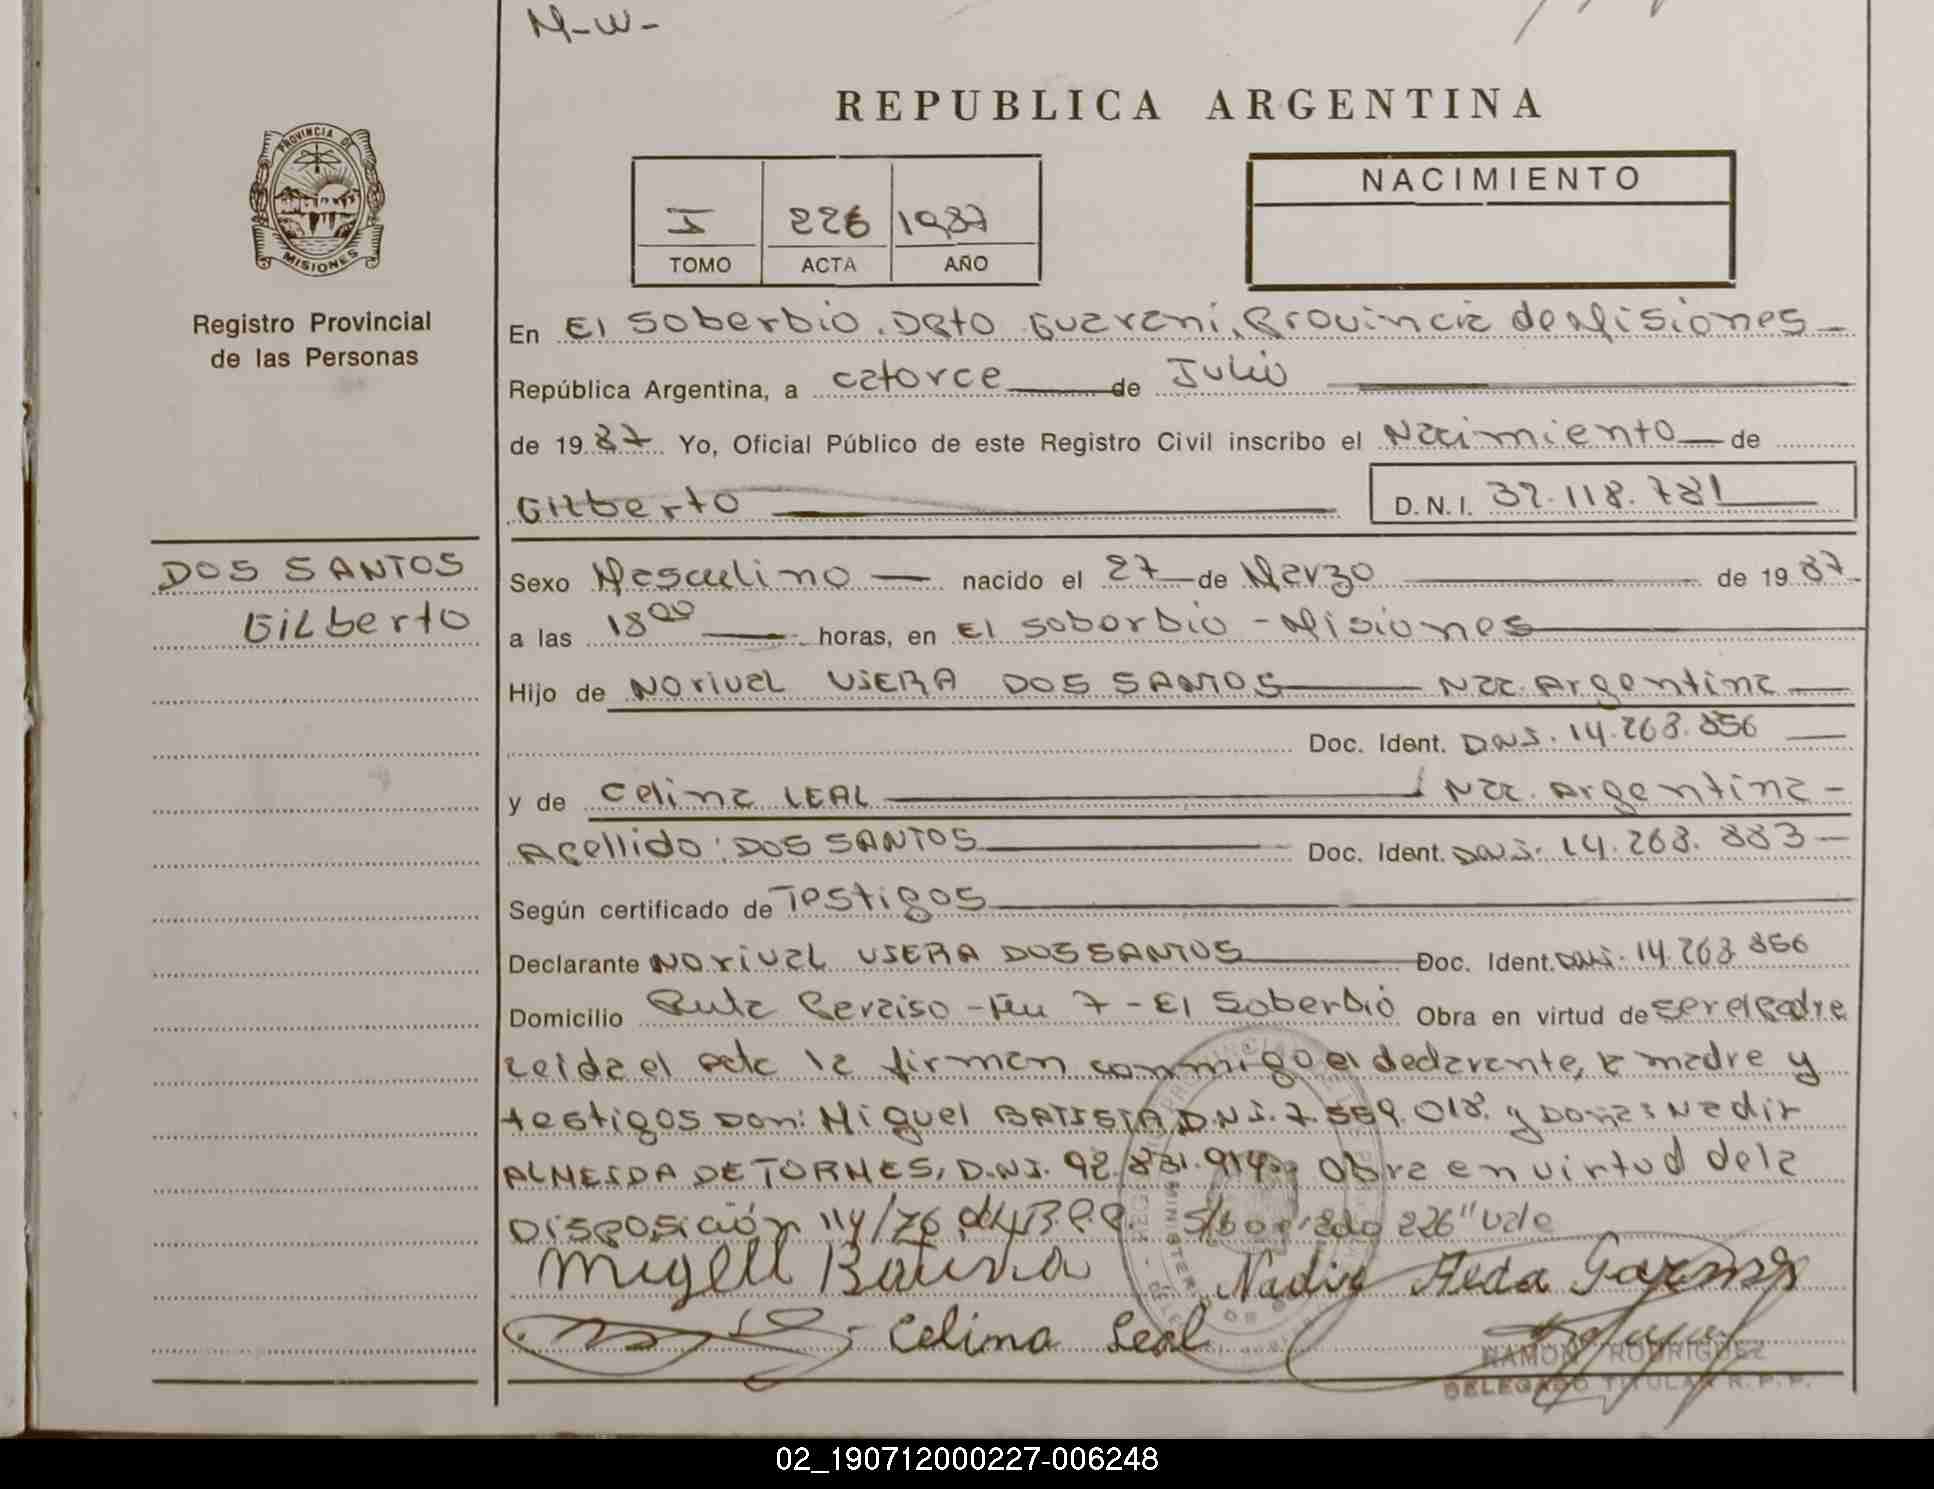 M-W-
REPUBLICA ARGENTINA
PROVINCIA DE MISIONES
NACIMIENTO
I 226 1987
TOMO ACTA AÑO
Registro Provincial
de las Personas
En El Soberbio. Dpto. Guarani, Provincia de Misiones
República Argentina, a catorce de Julio
de 1987 Yo, Oficial Público de este Registro Civil inscribo el Nacimiento de
Gilberto D.N.I. 32.118.781
DOS SANTOS
Gilberto
Sexo Masculino nacido el 27 de Marzo de 1987
a las 18 00 horas, en El Soberbio - Misiones
Hijo de Norival VIERA DOS SANTOS Nac. Argentina
Doc. Ident. D.N.I. 14.268.856
y de Celina LEAL Nac. Argentina -
Apellido: DOS SANTOS Doc. Ident. D.N.I. 14.268.883
Según certificado de Testigos
Declarante Norival VIERA DOS SANTOS Doc. Ident. D.N.I. 14.268.856
Domicilio Ruta Paraiso - Km 7 - El Soberbio Obra en virtud de ser el padre
Leida el acta la firman conmigo el declarante, la madre y
testigos Don: Miguel BATISTA D.N.I. 7.559.018. y Doña: Nadir
ALMEIDA DE TORMES, D.N.I. 92.831.914. Obra en virtud de la
Disposición 114/76 del R.P.P. S/borrado 226" Vale
Celina Leal
RAMON RODRIGUEZ
DELEGADO TITULAR R.P.P.
02_190712000227-006248